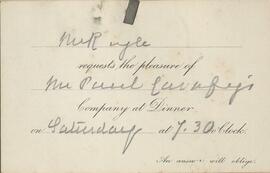 requests the pleasure of
Mr Paul Cavafy's
Company at Dinner
on Saturday at 7.30 o'Clock.
An answer will oblige.